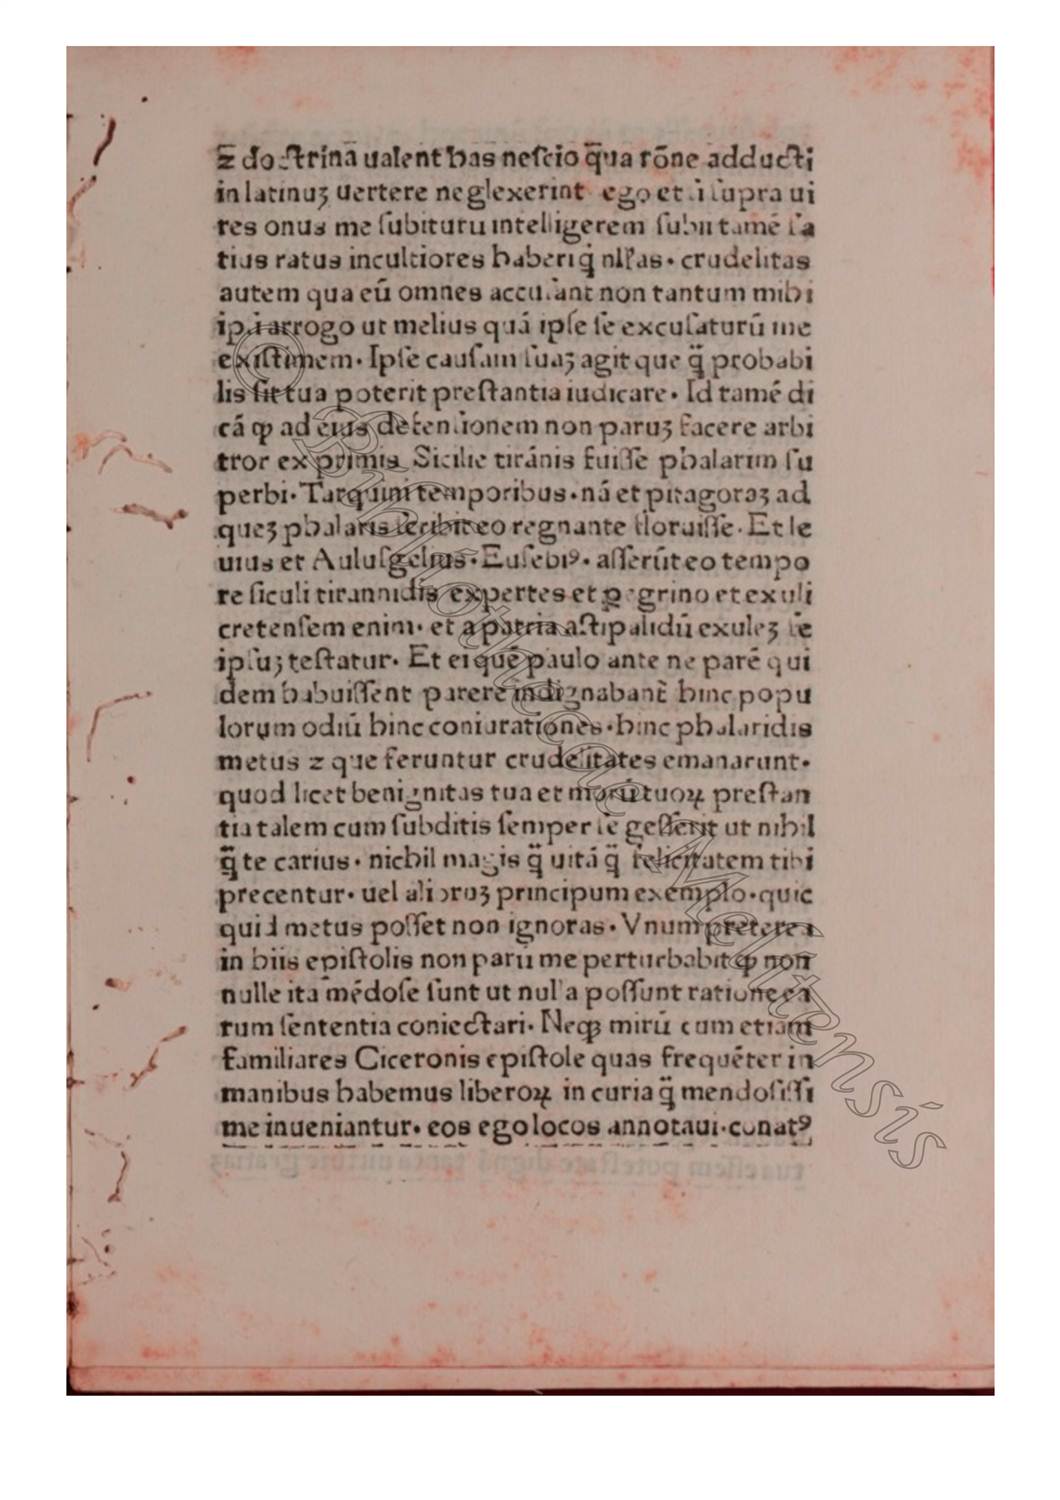 ⁊ doctrinā ualent has nescio q̄ua rōne adducti
in latinuꝫ uertere neglexerint ego etsi supra ui
res onus me subituru intelligerem subii tamē sa
tius ratus incultiores haberi q̄ nllas · crudelitas
autem qua eū omnes accusant non tantum mihi
ipsi arrogo ut melius quā ipse se excusaturū me
existimem · Ipse causam suaꝫ agit que q̄ probabi
lis sit tua poterit prestantia iudicare · Id tamē di
cā ꝙ ad eius defensionem non paruꝫ facere arbi
tror ex primis Sicilie tirānis fuisse phalarim su
perbi · Tarquini temporibus · nā et pitagoraꝫ ad
queꝫ phalaris scribit eo regnante floruisse · Et le
uius et Aulusgelius · Eusebiꝰ · asserūt eo tempo
re siculi tirannidis expertes et ꝑegrino et exuli
cretensem enim · et a patria astipalidū exuleꝫ se
ipsuꝫ testatur · Et ei quē paulo ante ne parē qui
dem habuissent parere indignabant̄ hinc popu
lorum odiū hinc coniurationes · hinc phalaridis
metus ⁊ que feruntur crudelitates emanarunt ·
quod licet benignitas tua et moriū tuoꝝ prestan
tia talem cum subditis semper se gesserit ut nihil
q̄ te carius · nichil magis q̄ uitā q̄ felicitatem tibi
precentur · uel alioruꝫ principum exemplo · quic
quid metus posset non ignoras · Vnum preterea
in hiis epistolis non parū me perturbabit ꝙ non
nulle ita mēdose sunt ut nulla possunt ratione ea
rum sententia coniectari · Neqꝫ mirū cum etiam
familiares Ciceronis epistole quas frequēter in
manibus habemus liberoꝝ in curia q̄ mendosissi
me inueniantur · eos ego locos annotaui · conatꝰ
© Bibliothecae Melitensis